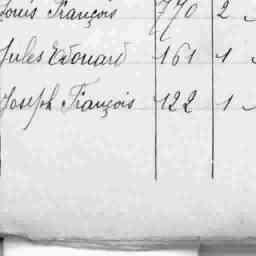 Louis François 770 2
Jules Edouard 161 1
Joseph François 122 1